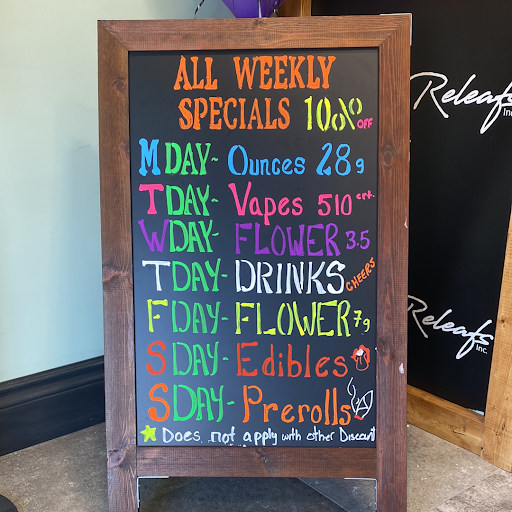 ALL WEEKLY
SPECIALS 10% OFF
M DAY- Ounces 28g
T DAY- Vapes 510 crt.
W DAY- FLOWER 3.5
T DAY- DRINKS CHEERS
F DAY- FLOWER 7g
S DAY- Edibles
S DAY- Prerolls
Does not apply with other Discount
Releafs
Inc.
Releafs
Inc.